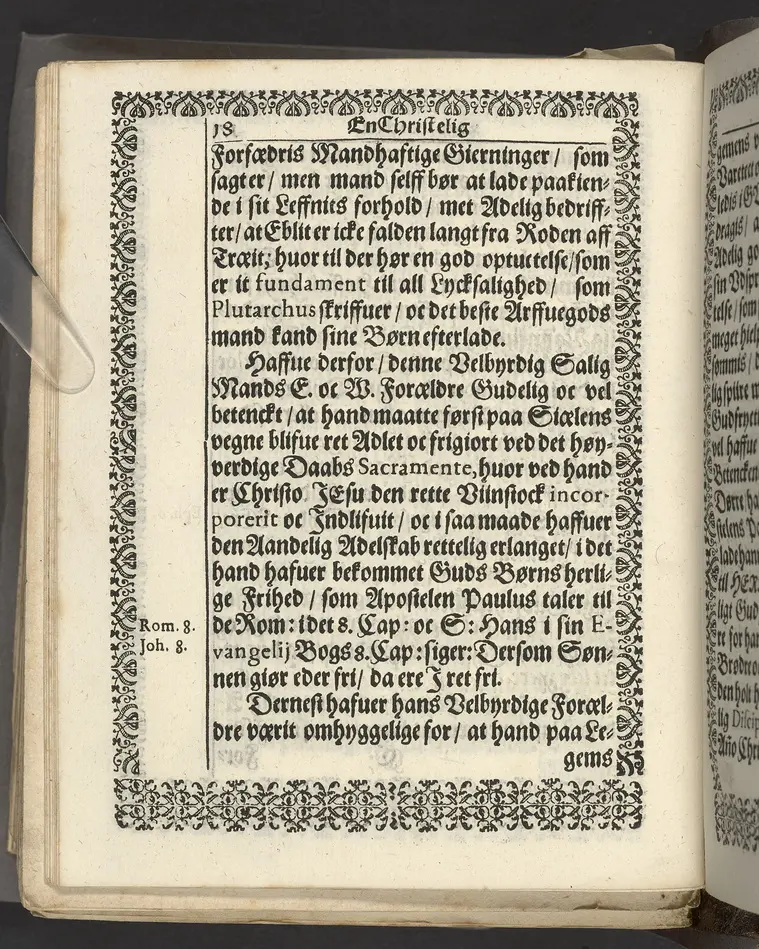 18 En Christelig
Forfædris Mandhaftige Gierninger / som
sagt er / men mand selff bør at lade paakien-
de i sit Leffnits forhold / met Adelig bedriff-
ter / at Eblit er icke falden langt fra Roden aff
Træit; huor til der hør en god optuctelse / som
er it fundament til all Lycksalighed / som
Plutarchus skriffuer / oc det beste Arffuegods
mand kand sine Børn efterlade.
Haffue derfor / denne Velbyrdig Salig
Mands E. oc W. Forældre Gudelig oc vel
betenckt / at hand maatte først paa Siælens
vegne blifue ret Adlet oc frigiort ved det høy-
verdige Daabs Sacramente, huor ved hand
er Christo JEsu den rette Viinstock incor-
porerit oc Indlifuit / oc i saa maade haffuer
den Aandelig Adelskab rettelig erlanget / i det
hand hafuer bekommet Guds Børns herli-
ge Frihed / som Apostelen Paulus taler til
de Rom: i det 8. Cap: oc S: Hans i sin E-
Rom. 8.
vangelij Bogs 8. Cap: siger: Dersom Søn-
Joh. 8.
nen giør eder fri / da ere I ret fri.
Dernest hafuer hans Velbyrdige Foræl-
dre værit omhyggelige for / at hand paa Le-
gems